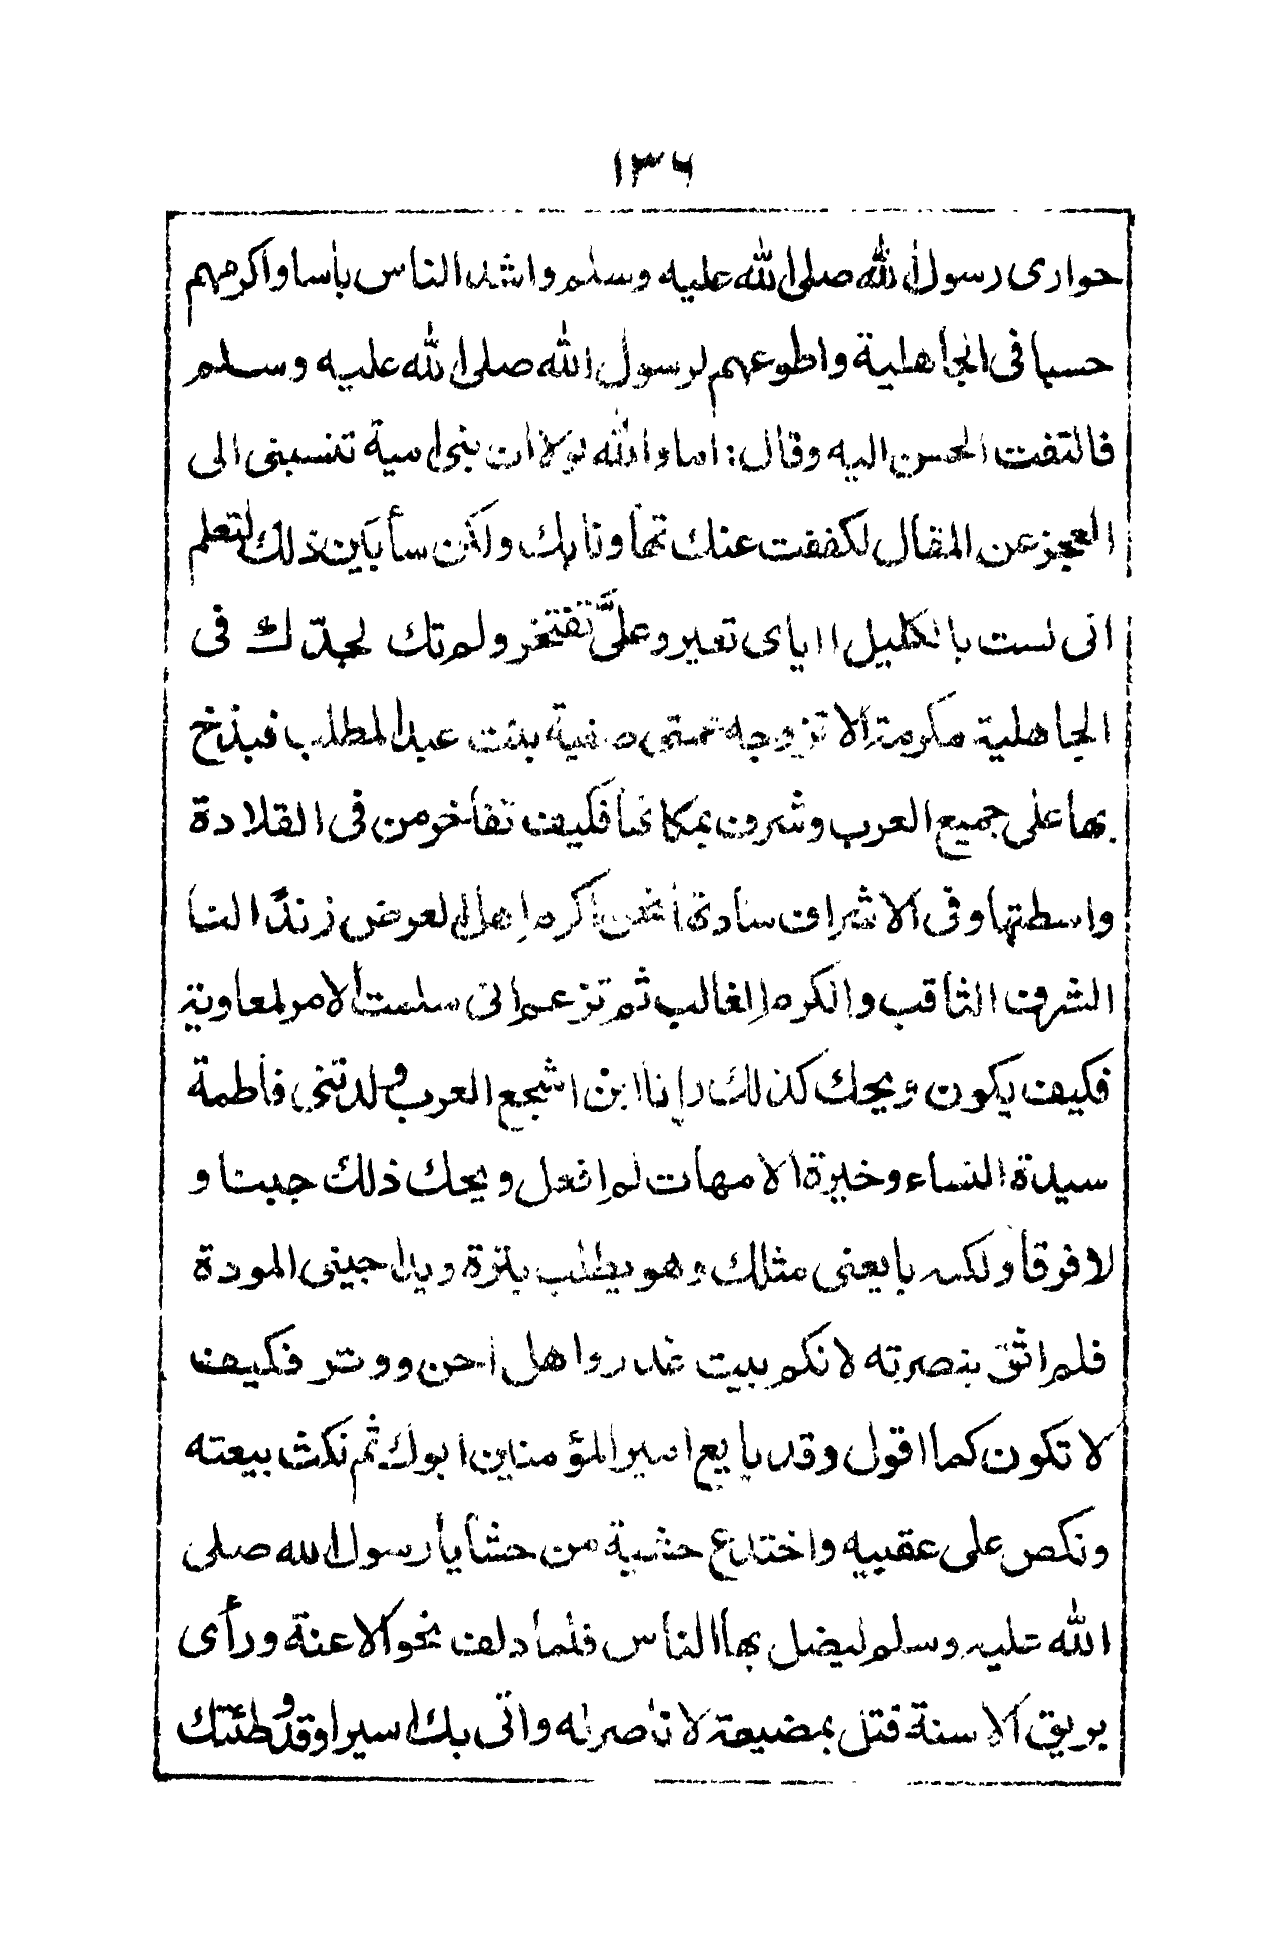 ١٣٦
حواري رسول الله صلى الله عليه وسلم واشد الناس بأسا واكرمهم
حسبا فى الجاهلية واطوعهم لرسول الله صلى الله عليه وسلم
فالتفت الحسن اليه وقال: اما والله لولا ان بنى امية تنسبنى الى
العجز عن المقال لكففت عنك تهاونا بك ولكن سأبين ذلك لتعلم
انى لست بالكليل ااياى تعير وعلىّ تفتخر ولم تك لجدّك فى
الجاهلية مكرمة الا تزوجه عمتى صفية بنت عبد المطلب فبذخ
بها على جميع العرب وشرف بمكانها فكيف تفاخر من فى القلادة
واسطتها وفى الاشراف سادتها نحن اكرم اهل العرض زندا لنا
الشرف الثاقب والكرم الغالب ثم تزعم انى سلمت الامر لمعاوية
فكيف يكون ويحك كذلك وانا ابن اشجع العرب ولدتنى فاطمة
سيدة النساء وخيرة الامهات لم افعل ويحك ذلك جبنا و
لا فرقا ولكنه بايعنى مثلك وهو يطلب بترة ويداجينى المودة
فلم اثق بنصرته لانكم بيت غدر واهل احن ووتر فكيف
لا تكون كما اقول وقد بايع امير المؤمنين ابوك ثم نكث بيعته
ونكص على عقبيه واختدع حشية من حشايا رسول الله صلى
الله عليه وسلم ليضل بها الناس فلما دلف نحو الاعنة ورأى
بريق الاسنة قتل بمضيعة لا ناصر له واتى بك اسيرا وقد وطئتك